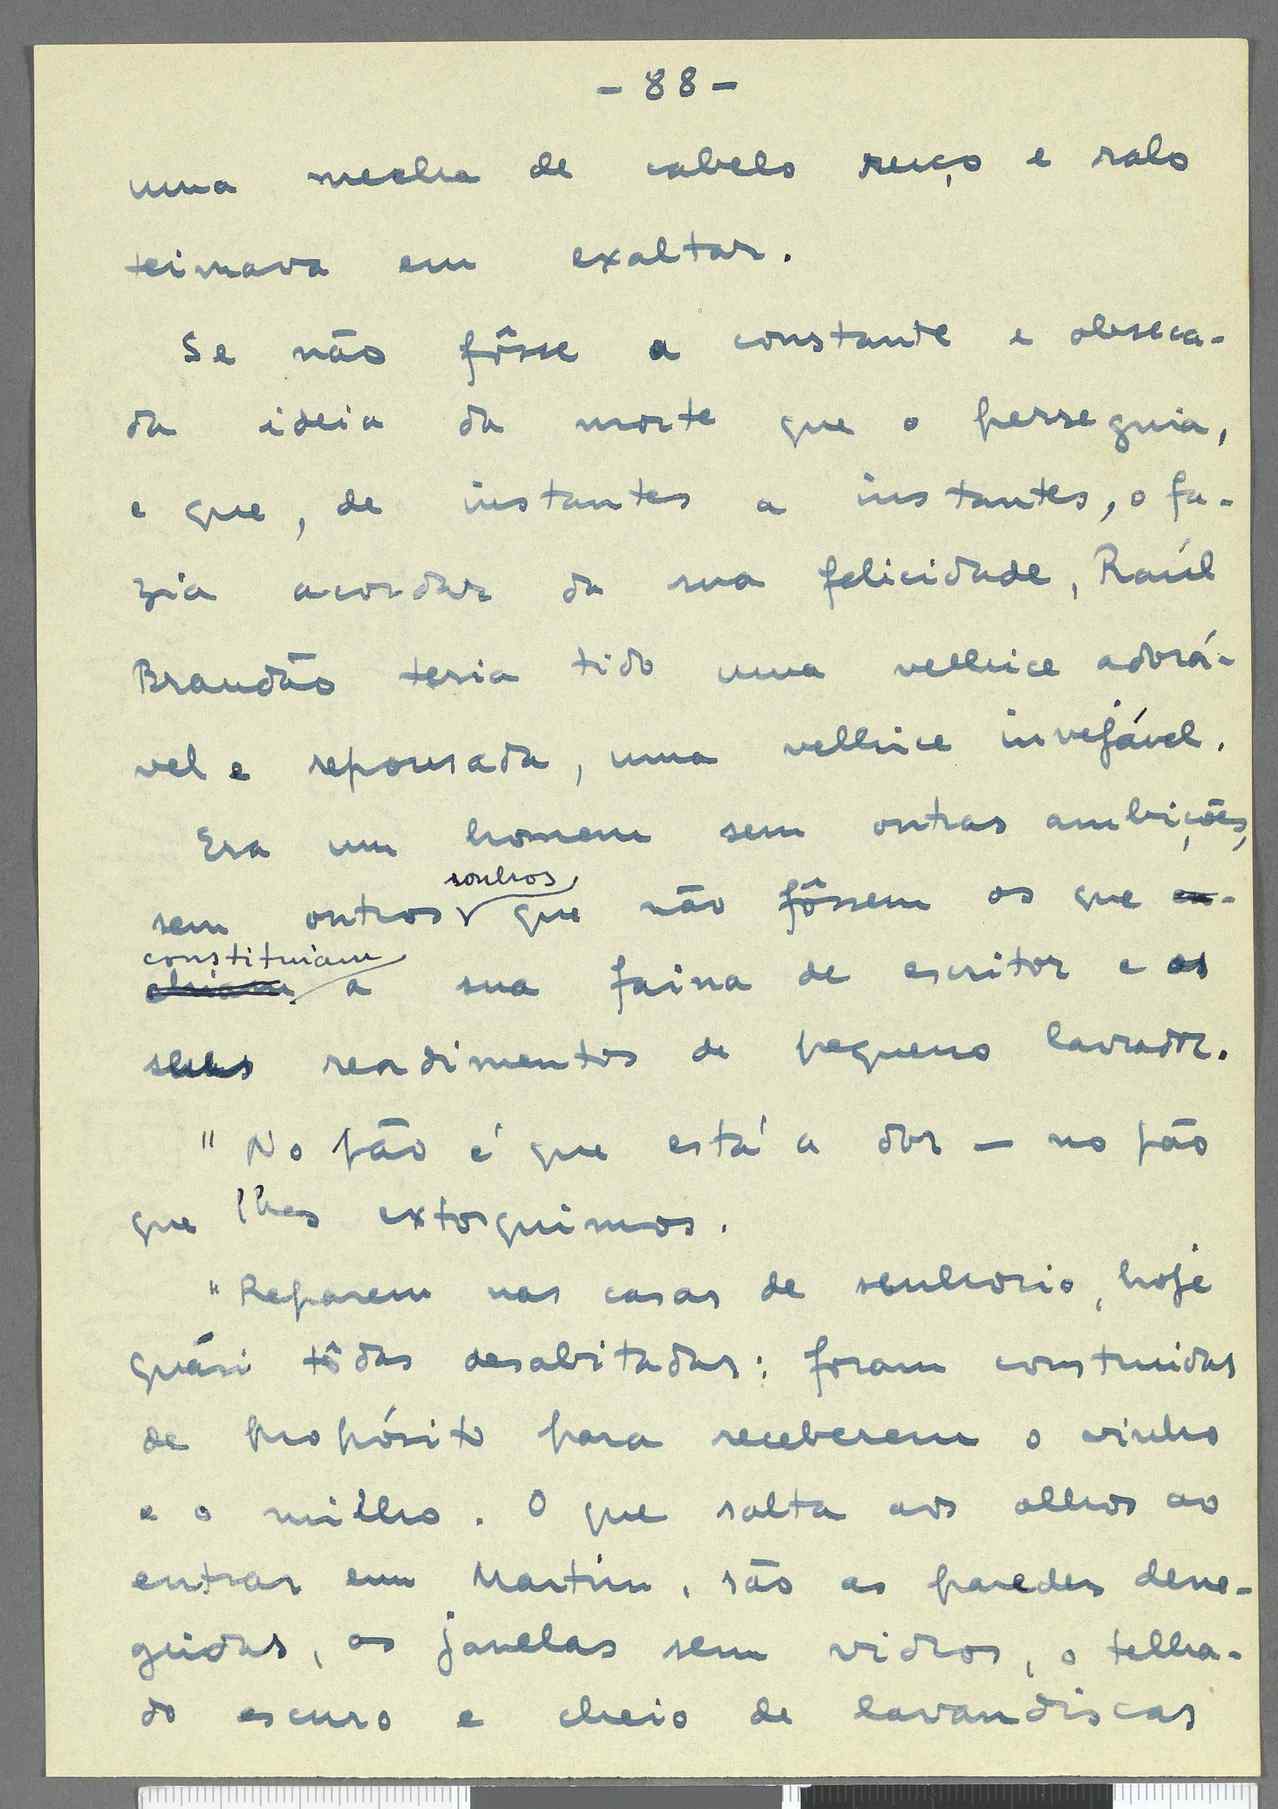 - 88 -
uma mecha de cabelo ruço e ralo
teimava em exaltar.
Se não fôsse a constante e obseca-
da ideia da morte que o perseguia,
e que, de instantes a instantes, o fa-
zia acordar da sua felicidade, Raúl
Brandão teria tido uma velhice adorá-
vel e repousada, uma velhice invejável.
Era um homem sem outras ambições,
sem outros sonhos que não fôssem os que en-
constituiam a sua faina de escritor e os
seus rendimentos de pequeno lavrador.
"No pão é que está a dor — no pão
que lhes extorquimos.
"Reparem nas casas de senhorio, hoje
quási tôdas desabitadas: foram construidas
de propósito para receberem o vinho
e o milho. O que salta aos olhos ao
entrar em Martim, são as paredes dene-
gridas, as janelas sem vidros, o telha-
do escuro e cheio de lavandiscas